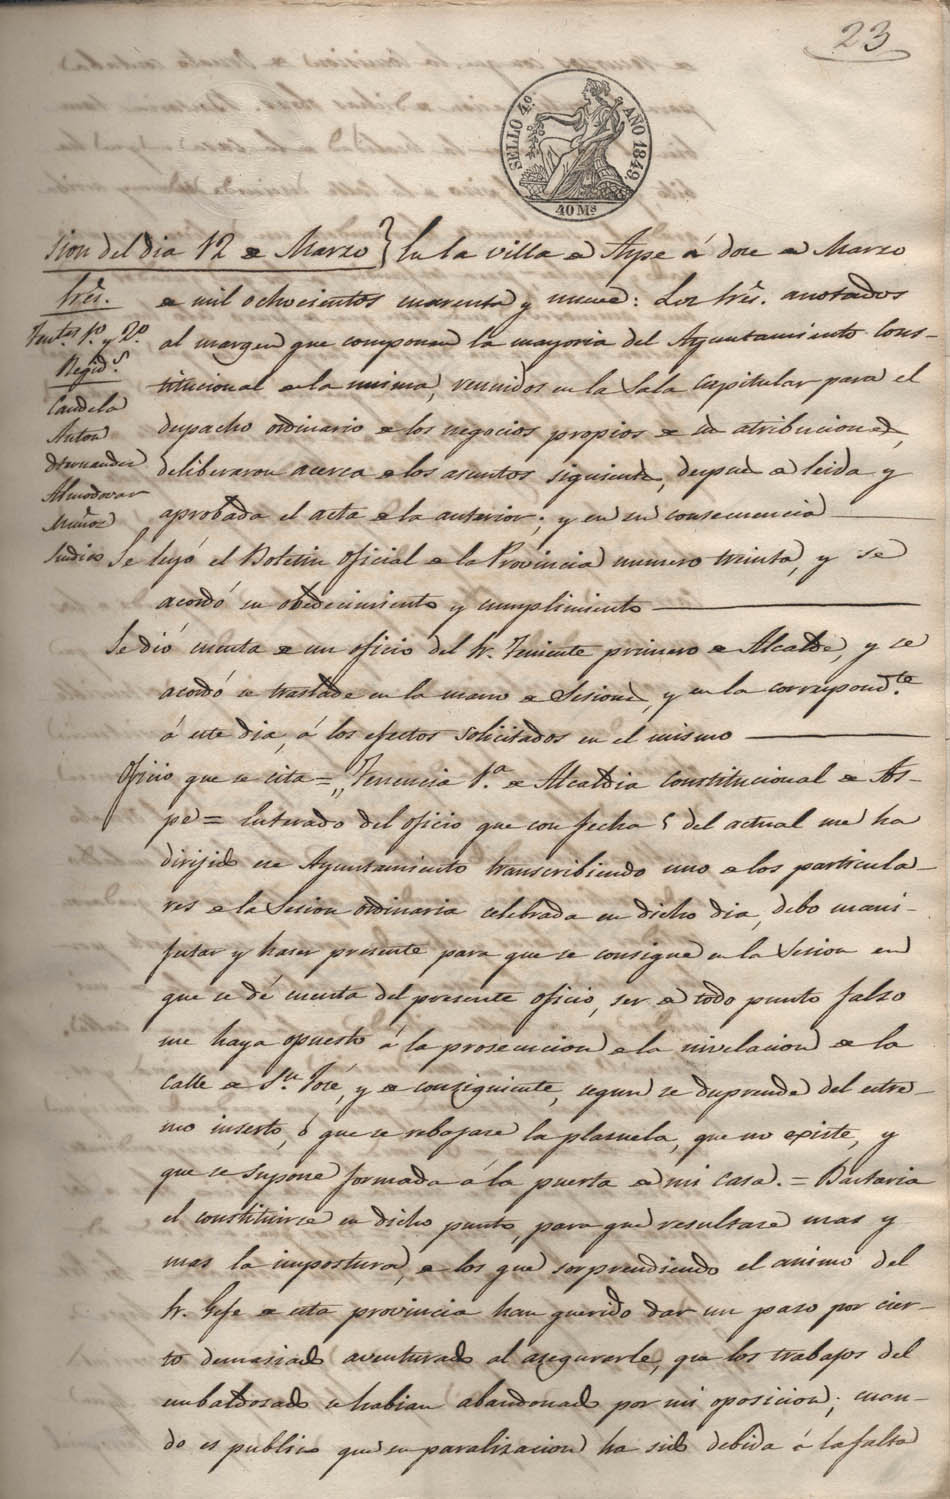 23
SELLO 4º AÑO 1849.
40 Ms
sion del dia 12 de Marzo } En la villa de Aspe á doce de Marzo
Sres. de mil ochocientos cuarenta y nueve: Los Sres. anotados
Tentes. 1º. y 2º. al margen que componen la mayoria del Ayuntamiento Cons-
Regids. titucional de la misma, reunidos en la Sala Capitular para el
Candela despacho ordinario de los negocios propios de su atribucion,
Anton
Hernandez deliberaron acerca de los asuntos siguientes, despues de leida y
Almodovar
Muñoz aprobada el acta de la anterior; y en su consecuencia
Sindico Se leyó el Boletin oficial de la Provincia numero treinta, y se
acordó su obedecimiento y cumplimiento
Se dió cuenta de un oficio del Sr. Teniente primero de Alcalde, y se
acordó se traslade en la mano de Sesiones, y en la correspondte.
á este dia, á los efectos solicitados en el mismo
Oficio que se cita = „Tenencia 1.a de Alcaldia constitucional de As-
pe = Enterado del oficio que con fecha 5 del actual me ha
dirijido ese Ayuntamiento transcribiendo uno de los particula-
res de la Sesion ordinaria celebrada en dicho dia, debo mani-
festar y hacer presente para que se consigne en la Sesion en
que se dé cuenta del presente oficio, ser de todo punto falso
me haya opuesto á la prosecucion de la nivelacion de la
calle de Sn. José, y de consiguiente, segun se desprende del estre-
mo inserto, ó que se rebajase la plasuela, que no existe, y
que se supone formada á la puerta de mi casa. = Bastaria
el constituirse en dicho punto, para que resultase mas y
mas la impostura, de los que sorprendiendo el animo del
Sr. Gefe de esta provincia han querido dar un paso por cier-
to demasiado aventurado al asegurarle, que los trabajos del
embaldosado se habian abandonado por mi oposicion; cuan-
do es publico que su paralisacion ha sido debida á la falta